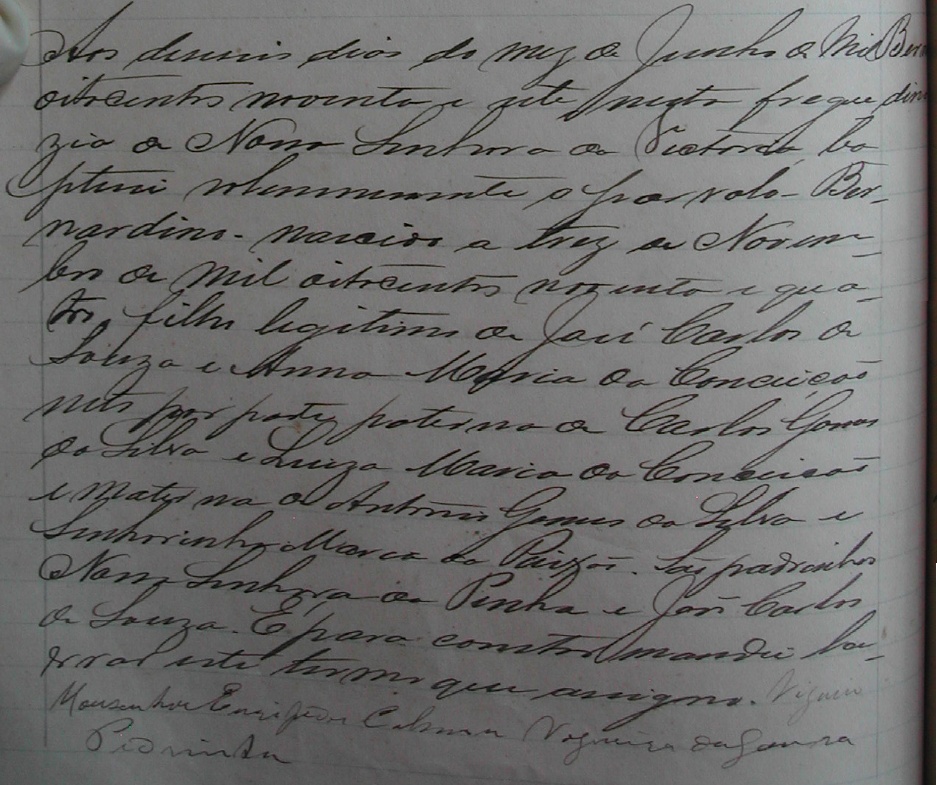 Aos deseseis dias do mez de Junho de Mil Ber
oitocentos noventa e sete nesta fregue dino
zia de Nossa Senhora da Victoria, ba
ptisei solemnemente o parvolo Ber-
nardino. nascido a trez de Novem-
bro de mil oitocentos noventa e qua-
tro, filho legitimo de José Carlos de
Souza e Anna Maria da Conceição
neto por parte paterna de Carlos Gomes
da Silva e Luiza Maria da Conceição
e materna de Antonio Gomes da Silva e
Senhorinha Maria da Paixão. São padrinhos
Nossa Senhora da Penha e João Carlos
de Souza. E para constar mandei la-
vrar este termo que assigno. Vigario
Monsenhor Nogueira da Gama